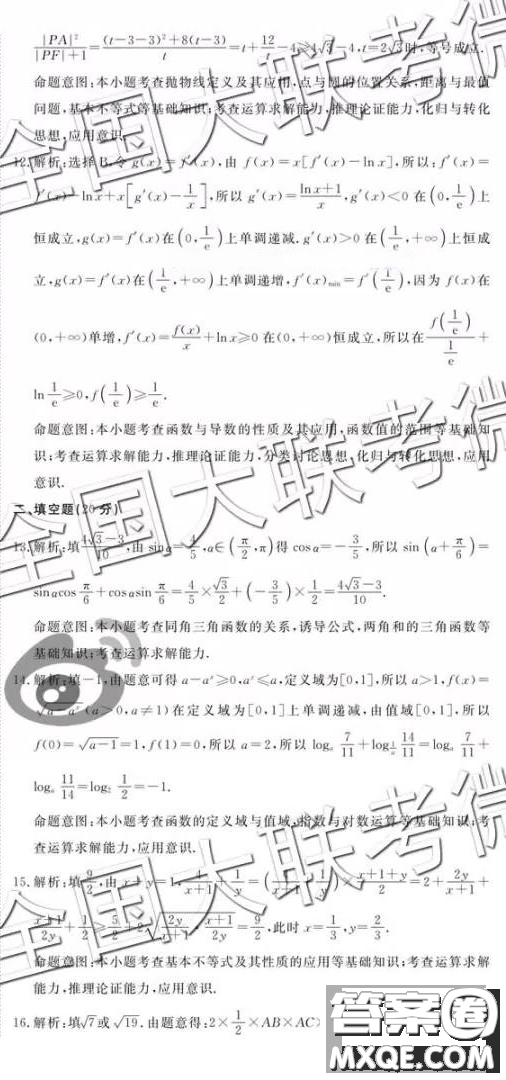 |PA|²/(|PF|+1)=((t-3-3)²+8(t-3))/t=t+12/t-4≥4√3-4,t=2√3时,等号成立.
命题意图:本小题考查抛物线定义及其应用,点与圆的位置关系,距离与最值
问题,基本不等式等基础知识;考查运算求解能力,推理论证能力,化归与转化
思想,应用意识.
12.解析:选择B.令g(x)=f′(x),由f(x)=x[f′(x)-ln x],所以:f′(x)=
f′(x)-ln x+x[g′(x)-1/x],所以g′(x)=(ln x+1)/x,g′(x)<0在(0,1/e)上
恒成立,g(x)=f′(x)在(0,1/e)上单调递减.g′(x)>0在(1/e,+∞)上恒成
立,g(x)=f′(x)在(1/e,+∞)上单调递增,f′(x)min=f′(1/e),因为f(x)在
(0,+∞)单增,f′(x)=f(x)/x+ln x≥0在(0,+∞)恒成立,所以在f(1/e)/(1/e)+
ln 1/e≥0,f(1/e)≥1/e.
命题意图:本小题考查函数与导数的性质及其应用,函数值的范围等基础知
识;考查运算求解能力,推理论证能力,分类讨论思想,化归与转化思想,应用
意识.
二、填空题(20分)
13.解析:填(4√3-3)/10,由sinα=4/5,α∈(π/2,π)得cosα=-3/5,所以sin(α+π/6)=
sinαcosπ/6+cosαsinπ/6=4/5×√3/2+(-3/5)×1/2=(4√3-3)/10.
命题意图:本小题考查同角三角函数的关系,诱导公式,两角和的三角函数等
基础知识;考查运算求解能力.
14.解析:填-1,由题意可得a-aˣ≥0,aˣ≤a,定义域为[0,1],所以a>1,f(x)=
√(a-aˣ)(a>0,a≠1)在定义域为[0,1]上单调递减,由值域[0,1],所以
f(0)=√(a-1)=1,f(1)=0,所以a=2,所以logₐ 7/11+log_(1/a) 14/11=logₐ 7/11+
logₐ 11/14=log₂ 1/2=-1.
命题意图:本小题考查函数的定义域与值域,指数与对数运算等基础知识;考
查运算求解能力,应用意识.
15.解析:填9/2,由x+y=1,4/(x+1)+1/y=( )×(x+1+y)/2=2+2y/(x+1)+
(x+1)/2y+1/2≥5/2+2√(2y/(x+1)·(x+1)/2y)=9/2,此时x=1/3,y=2/3.
命题意图:本小题考查基本不等式及其性质的应用等基础知识;考查运算求解
能力,推理论证能力,应用意识.
16.解析:填√7或√19.由题意得:2×1/2×AB×AC
全国大联考微
全国大联考微
全国大联考微
答案圈
MXQE.COM